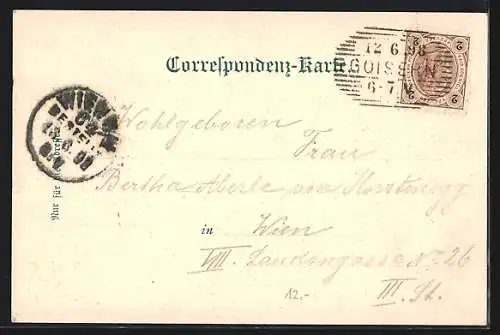 12 6 98
GOIS
6-7
Correspondenz-Karte
2
2
WIEN
BESTELLT
Nur für die Adresse
Wohlgeboren
Frau
Bertha Aberle von
in Wien
VIII. Laudongasse No 26
III. St.
12.-